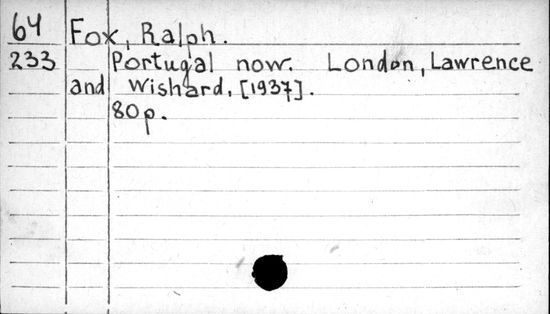 64 Fox, Ralph.
233 Portugal now. London, Lawrence
and Wishard, [1937].
80p.